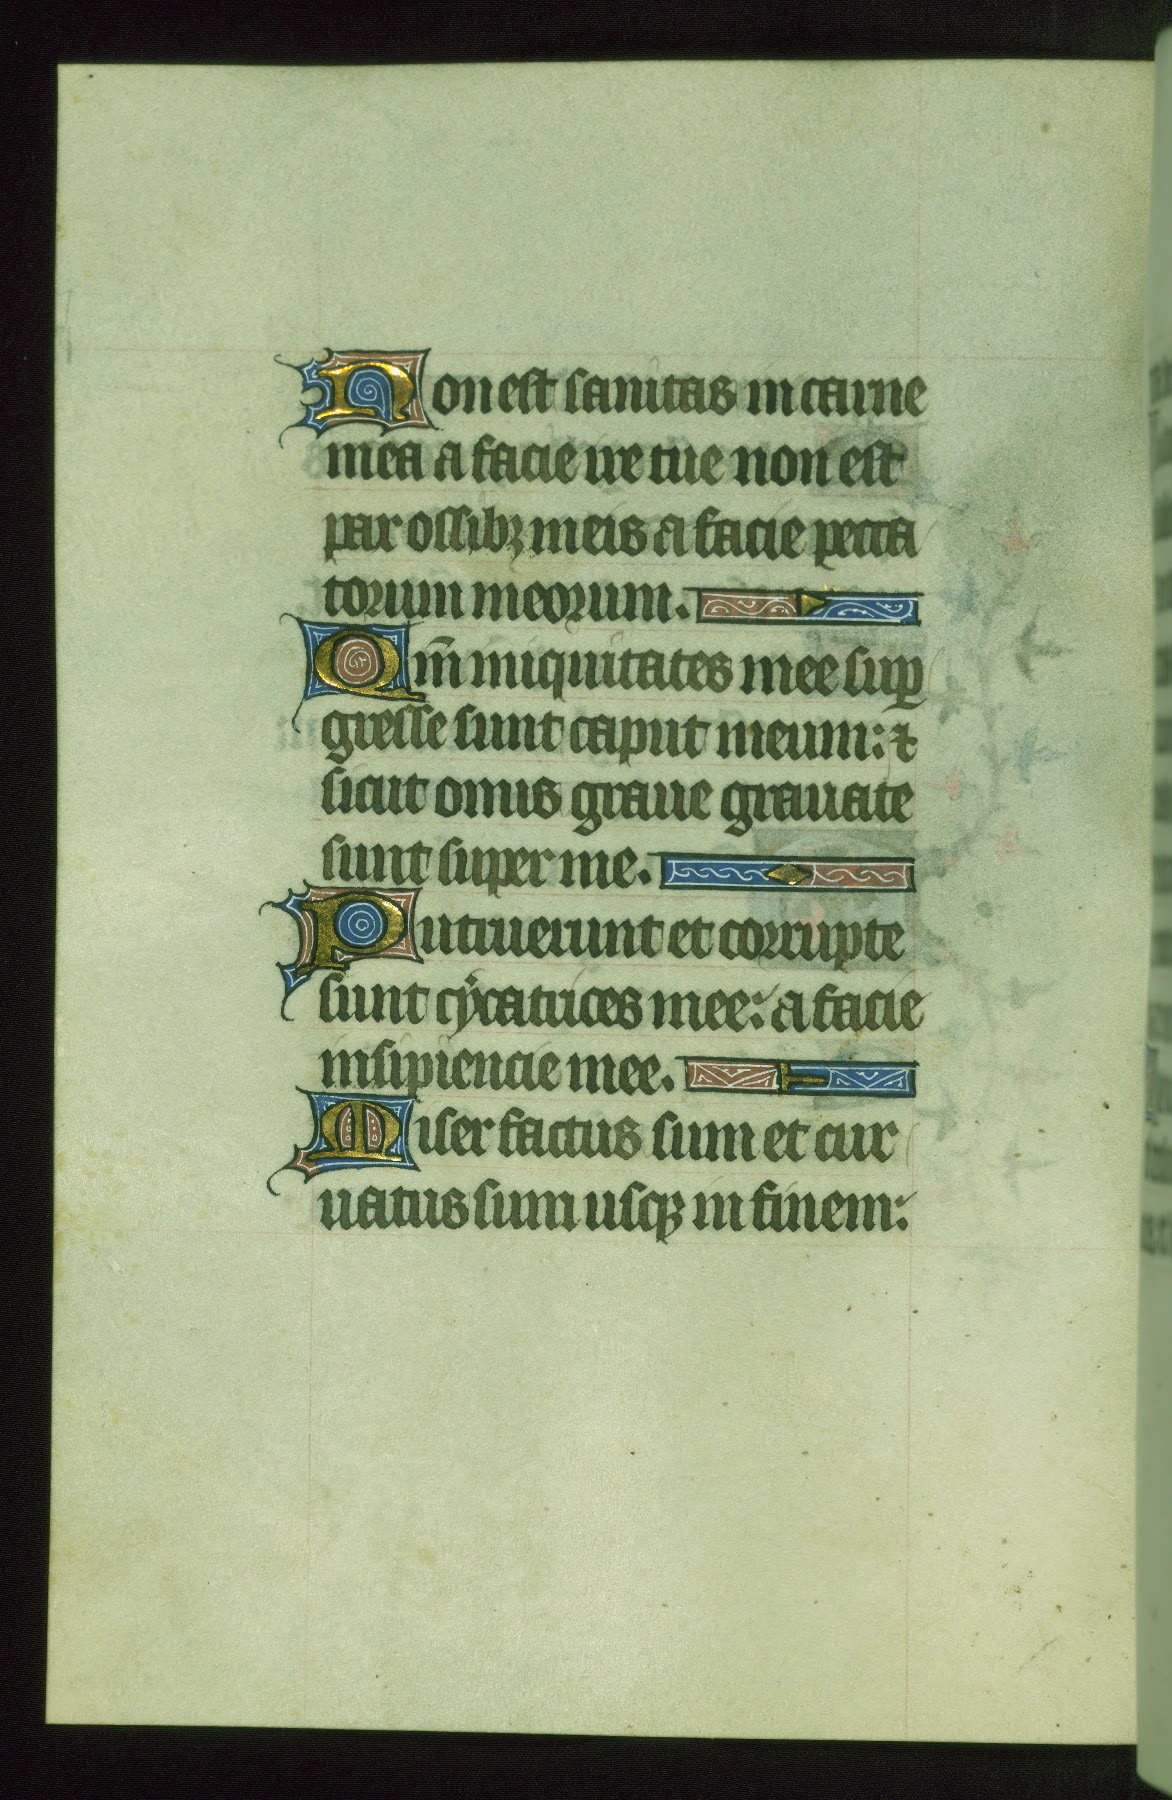 Non est sanitas in carne
mea a facie ire tue non est
pax ossibꝫ meis a facie pecca
torum meorum.
Qm̄ iniquitates mee suꝑ
gresse sunt caput meum: ⁊
sicut onus graue grauate
sunt super me.
Putruerunt et corrupte
sunt cycatrices mee: a facie
insipiencie mee.
Miser factus sum et cur
uatus sum usqꝫ in finem: